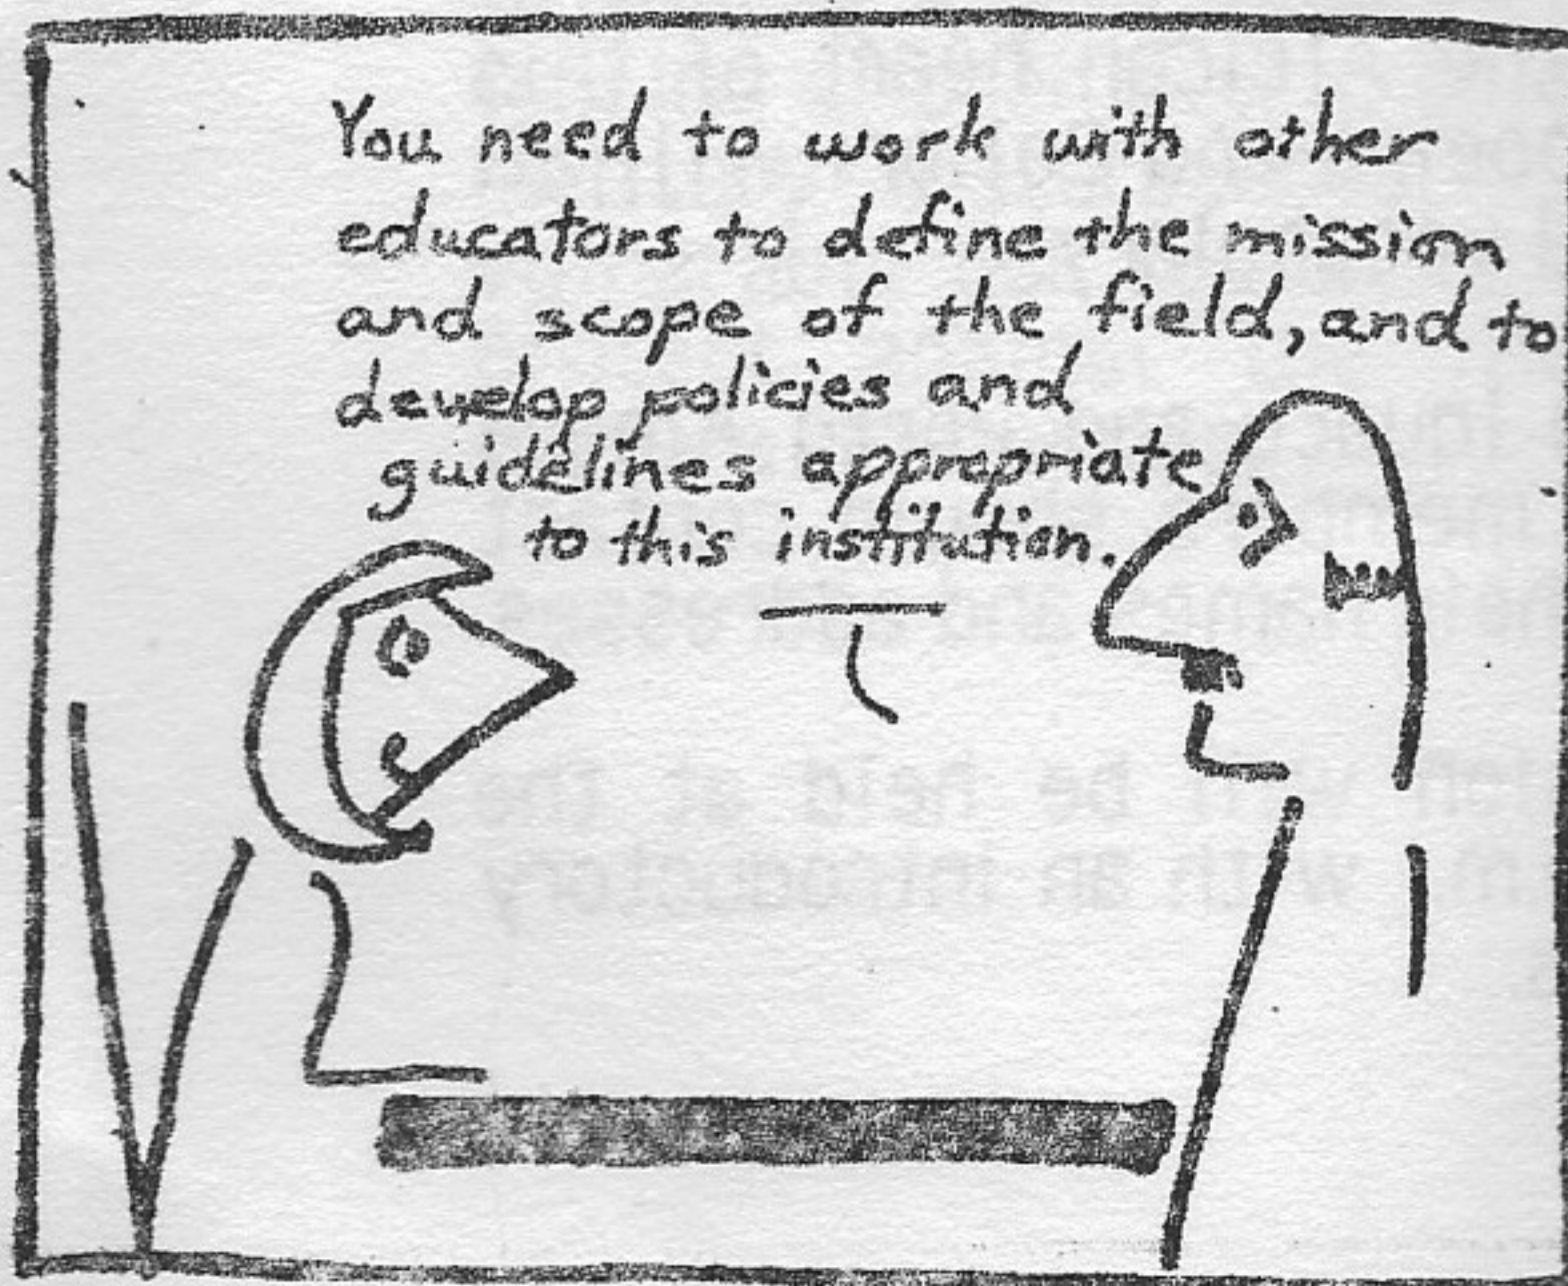 You need to work with other
educators to define the mission
and scope of the field, and to
develop policies and
guidelines appropriate
to this institution.